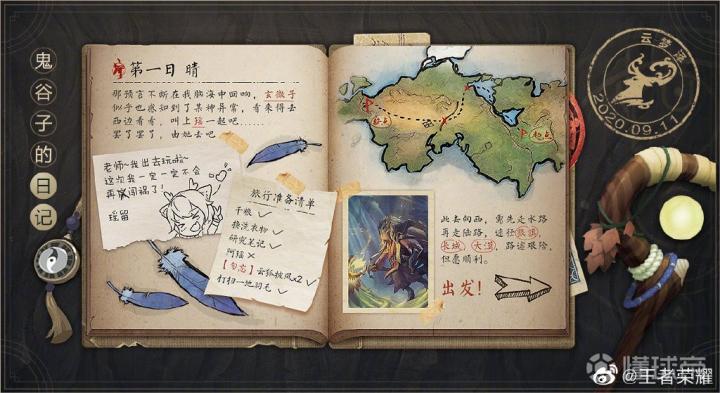 鬼谷子的日记
第一日 晴
那预言不断在我脑海中回响，玄微子
似乎也感知到了某种异常，看来得去
西边看看，叫上瑶一起吧......
罢了罢了，由她去吧
老师~我出去玩啦~
这次我一定一定不会
再闯祸了！
瑶留
旅行准备清单
干粮
换洗衣物
研究笔记
阿瑶
【勿忘】云狐披风x2
打扫一地羽毛
终点
起点
此去向西，需先走水路
再走陆路，途径
长城 大漠，路途艰险，
但愿顺利。
出发！
云梦泽
2020.09.11
懂球帝
@王者荣耀